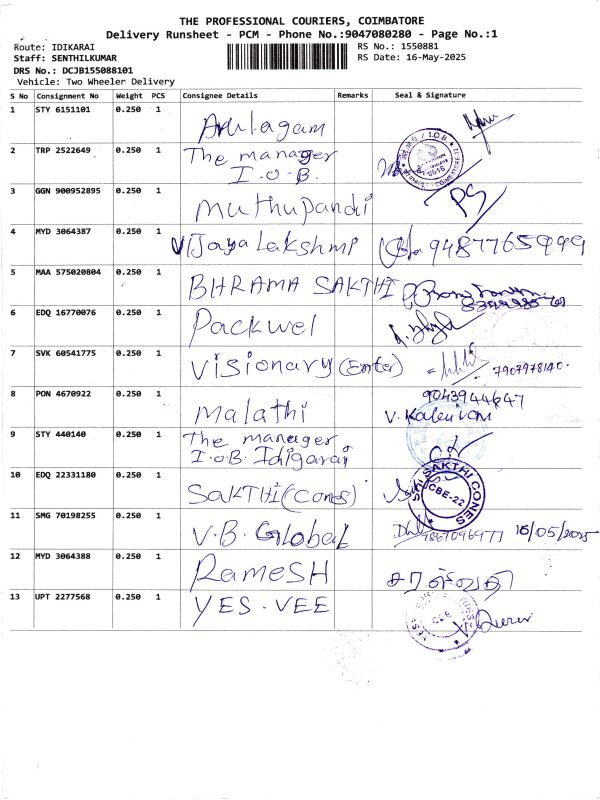 THE PROFESSIONAL COURIERS, COIMBATORE
Delivery Runsheet - PCM - Phone No.:9047080280 - Page No.:1
Route: IDIKARAI
RS No.: 1550881
Staff: SENTHILKUMAR
RS Date: 16-May-2025
DRS No.: DCJB155088101
Vehicle: Two Wheeler Delivery
S No Consignment No Weight PCS Consignee Details Remarks Seal & Signature
1 STY 6151101 0.250 1 Arulagam
2 TRP 2522649 0.250 1 The manager
I.O.B.
3 GGN 900952895 0.250 1 Muthupandi
4 MYD 3064387 0.250 1 Vijaya Lakshmi 9487765999
5 MAA 575020804 0.250 1 BHRAMA SAKTHI
6 EDQ 16770076 0.250 1 Packwel
7 SVK 60541775 0.250 1 Visionary (Enter) 7907978140.
8 PON 4670922 0.250 1 Malathi 9043944647
9 STY 440140 0.250 1 The manager
I.O.B. Idigarai
10 EDQ 22331180 0.250 1 SAKTHI (Cones) SAKTHI CONES CBE-22
11 SMG 70198255 0.250 1 V.B. Global 9867096977 16/05/2025
12 MYD 3064388 0.250 1 RAMESH
13 UPT 2277568 0.250 1 YES. VEE CBE